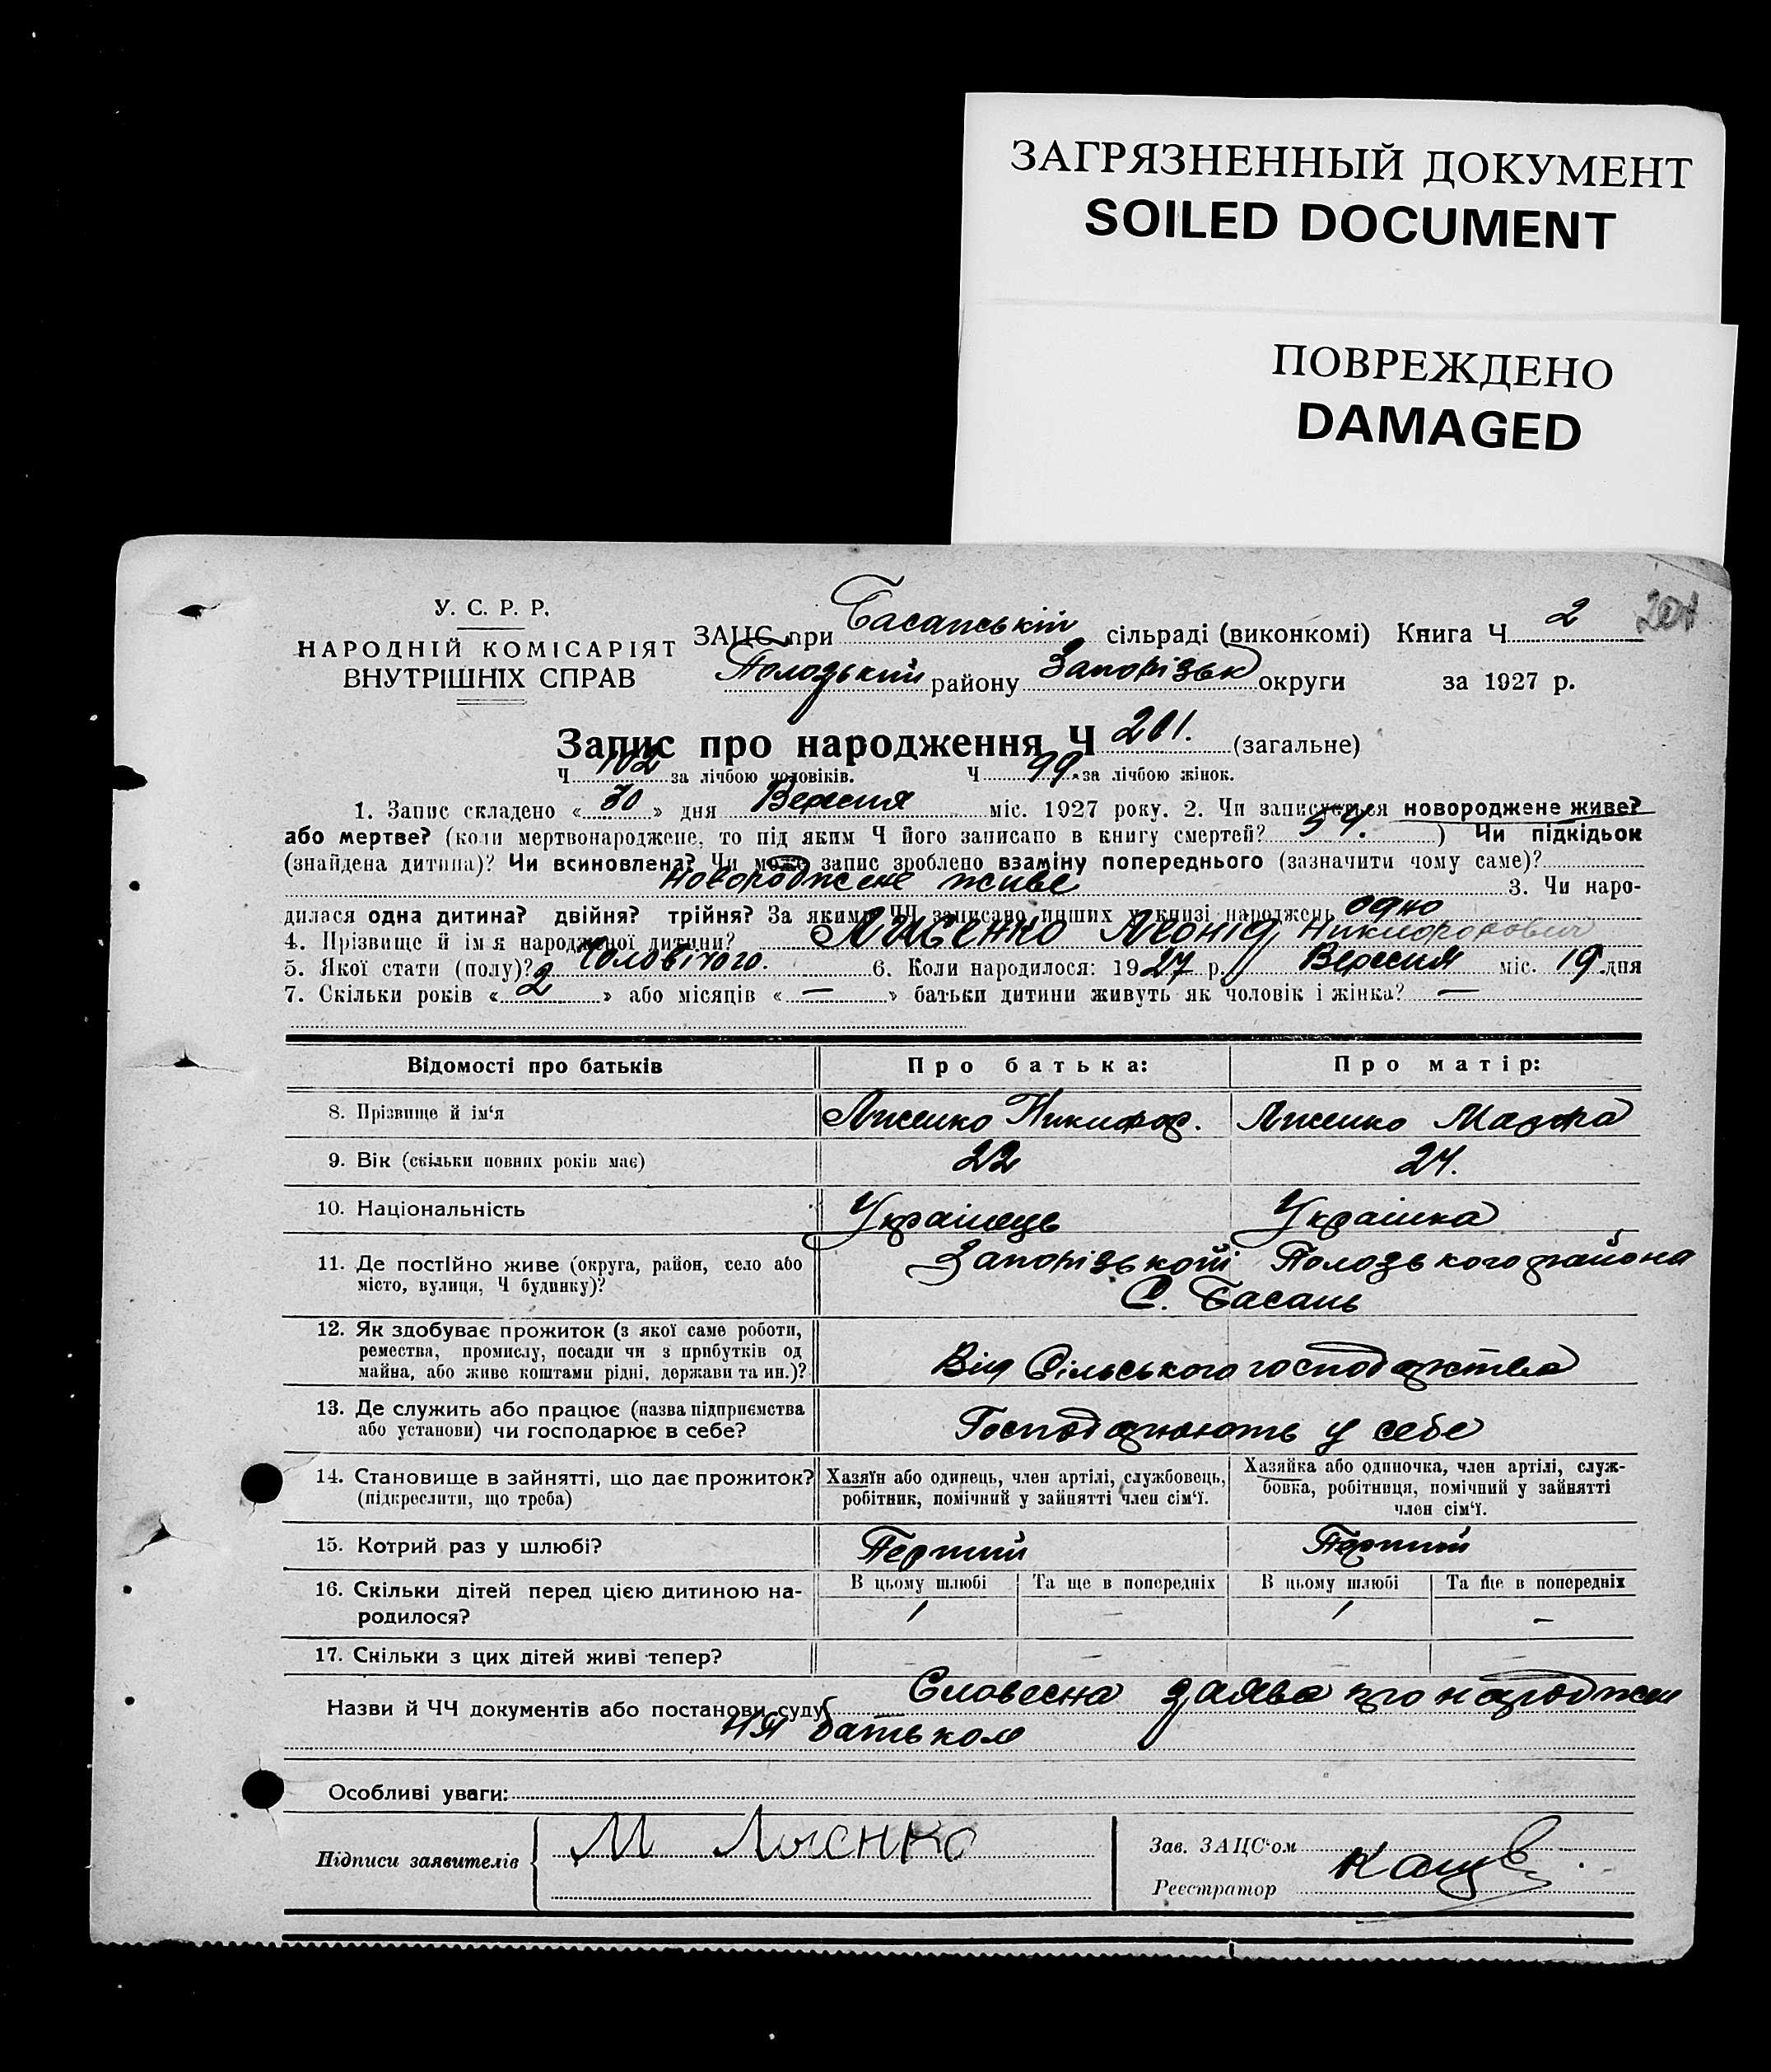 ЗАГРЯЗНЕННЫЙ ДОКУМЕНТ
SOILED DOCUMENT
ПОВРЕЖДЕНО
DAMAGED
У. С. Р. Р.
НАРОДНІЙ КОМІСАРІЯТ
ВНУТРІШНІХ СПРАВ
ЗАЦС при Басанській сільраді (виконкомі) Книга Ч 2
Пологзький району Запорізьк округи за 1927 р.
Запис про народження Ч 201. (загальне)
Ч 102 за лічбою чоловіків. Ч 99 за лічбою жінок.
1. Запис складено « 30 » дня Вересня міс. 1927 року. 2. Чи записується новороджене живе?
або мертве? (коли мертвонароджене, то під яким Ч його записано в книгу смертей? ) Чи підкідьок
(знайдена дитина)? Чи всиновлена? Чи може запис зроблено взаміну попереднього (зазначити чому саме)?
новороджене живе 3. Чи наро-
дилася одна дитина? двійня? трійня? За якими ЧЧ записано инших у книзі народжень одно
4. Прізвище й ім'я народженої дитини? Лисенко Леонід Никифорович
5. Якої стати (полу)? Чоловічого. 6. Коли народилося: 1927 р. Вересня міс. 19 дня
7. Скільки років « 2 » або місяців « — » батьки дитини живуть як чоловік і жінка? —
Відомості про батьків Про батька: Про матір:
8. Прізвище й ім'я Лисенко Никифор. Лисенко Мафра
9. Вік (скільки повних років має) 22 24.
10. Національність Українець Українка
11. Де постійно живе (округа, район, село або Запорізької Пологзького района
місто, вулиця, Ч будинку)? С. Басань
12. Як здобуває прожиток (з якої саме роботи,
ремества, промислу, посади чи з прибутків од
майна, або живе коштами рідні, держави та ин.)? Від Сільського господарства
13. Де служить або працює (назва підприємства
або установи) чи господарює в себе? Господарюють у себе
14. Становище в зайнятті, що дає прожиток? Хазяїн або одинець, член артілі, службовець, Хазяйка або одиночка, член артілі, служ-
(підкреслити, що треба) робітник, помічний у зайнятті член сім'ї. бовка, робітниця, помічний у зайнятті
член сім'ї.
15. Котрий раз у шлюбі? Перший Перший
16. Скільки дітей перед цією дитиною на- В цьому шлюбі Та ще в попередніх В цьому шлюбі Та ще в попередніх
родилося? 1 — 1 —
17. Скільки з цих дітей живі тепер? — — — —
Назви й ЧЧ документів або постанови суду Словесна заява про народжен
ня батьком
Особливі уваги:
Підписи заявителів М Лысенко Зав. ЗАЦС'ом
Реєстратор